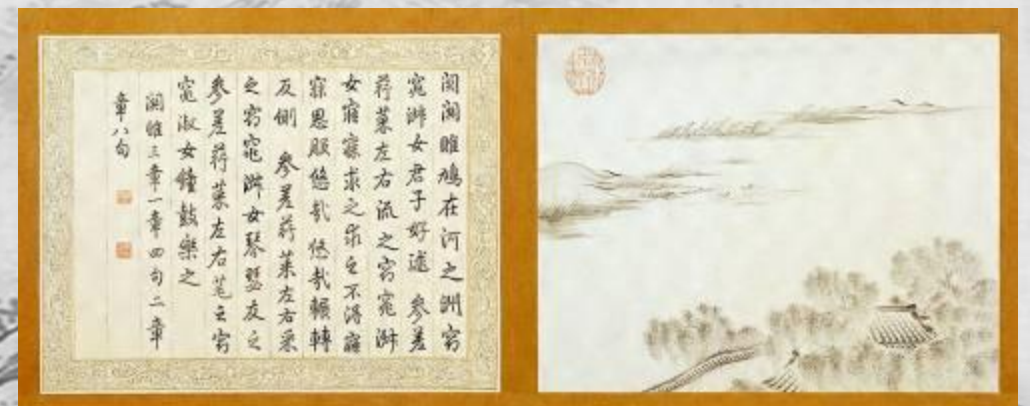 關關雎鳩在河之洲窈
窕淑女君子好逑 參差
荇菜左右流之窈窕淑
女寤寐求之求之不得寤
寐思服悠哉 悠哉輾轉
反側 參差荇菜左右采
之窈窕淑女琴瑟友之
參差荇菜左右芼之窈
窕淑女鐘鼓樂之
關雎三章一章四句二章
章八句